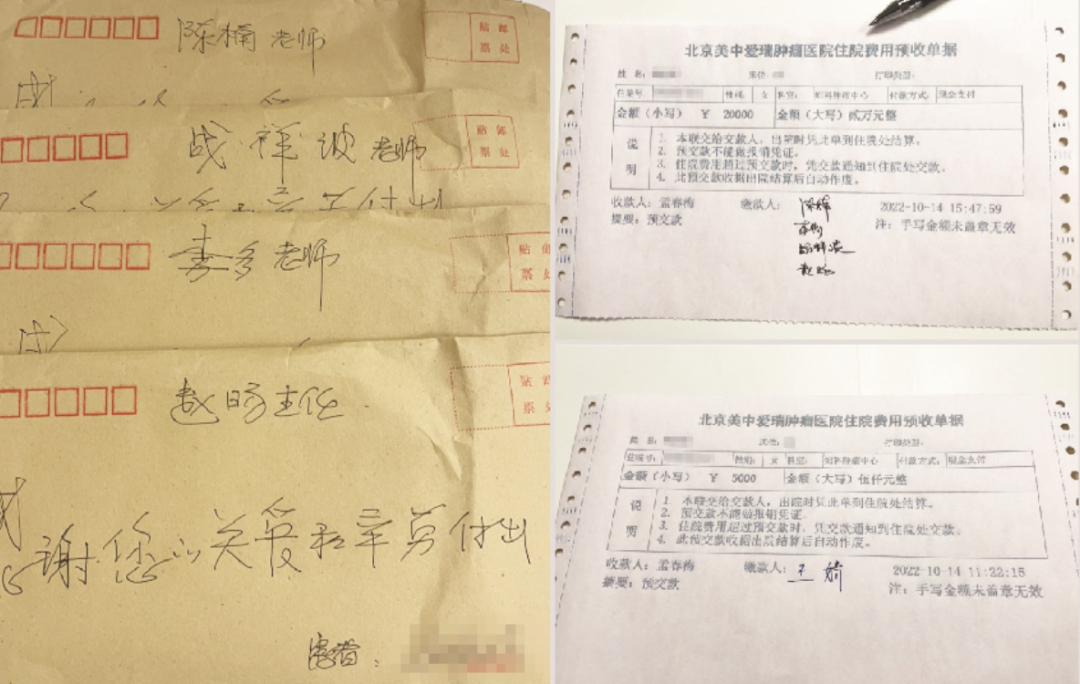 陈楠老师
贴邮
票处
战祥波老师
贴邮
票处
李多老师
贴邮
票处
赵昀主任
贴
票处
感谢您的关爱和辛勤付出
患者:
北京美中爱瑞肿瘤医院住院费用预收单据
姓名: 床位: 打印类型:
住院号: 性别: 女 科室: 妇科肿瘤中心 付款方式: 现金支付
金额(小写) ¥ 20000 金额(大写)贰万元整
说明
1. 本联交给交款人,出院时凭此单到住院处结算。
2. 预交款不能做报销凭证。
3. 住院费用超过预交款时,凭交款通知到住院处交款。
4. 此预交款收据出院结算后自动作废。
收款人: 孟春梅 缴款人: 2022-10-14 15:47:59
摘要: 预交款 注: 手写金额未盖章无效
北京美中爱瑞肿瘤医院住院费用预收单据
姓名: 床位: 打印类型:
住院号: 性别: 女 科室: 妇科肿瘤中心 付款方式: 现金支付
金额(小写) ¥ 5000 金额(大写)伍仟元整
说明
1. 本联交给交款人,出院时凭此单到住院处结算。
2. 预交款不能做报销凭证。
3. 住院费用超过预交款时,凭交款通知到住院处交款。
4. 此预交款收据出院结算后自动作废。
收款人: 孟春梅 缴款人: 王 2022-10-14 11:22:15
摘要: 预交款 注: 手写金额未盖章无效